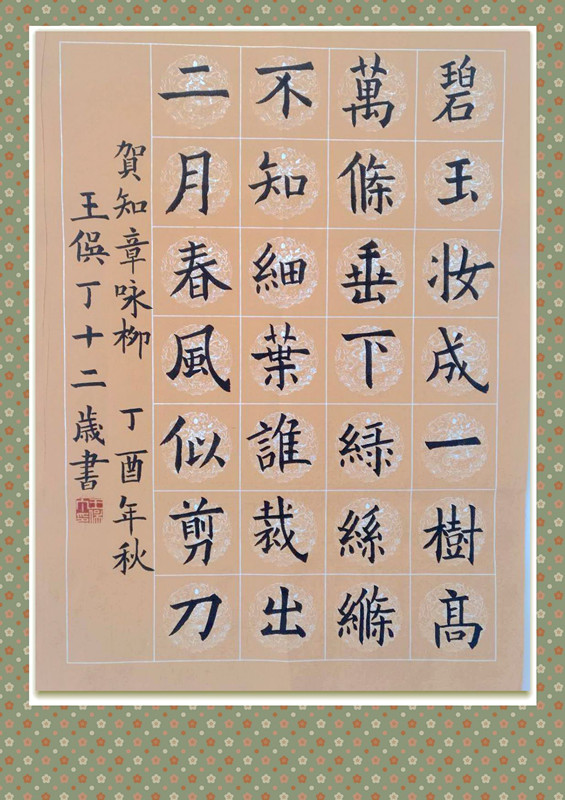 碧玉妝成一樹高
萬條垂下緑絲縧
不知細葉誰裁出
二月春風似剪刀
賀知章咏柳 丁酉年秋
王俣丁十二歲書